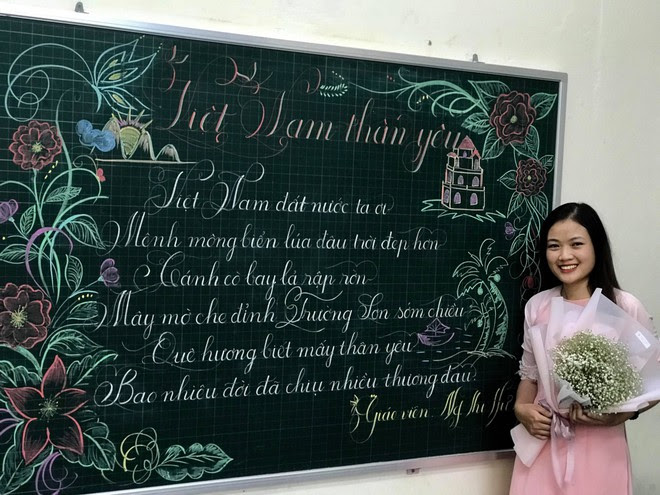 Việt Nam thân yêu
Việt Nam đất nước ta ơi
Mênh mông biển lúa đâu trời đẹp hơn
Cánh cò bay lả rập rờn
Mây mờ che đỉnh Trường Sơn sớm chiều
Quê hương biết mấy thân yêu
Bao nhiêu đời đã chịu nhiều thương đau.
Giáo viên: